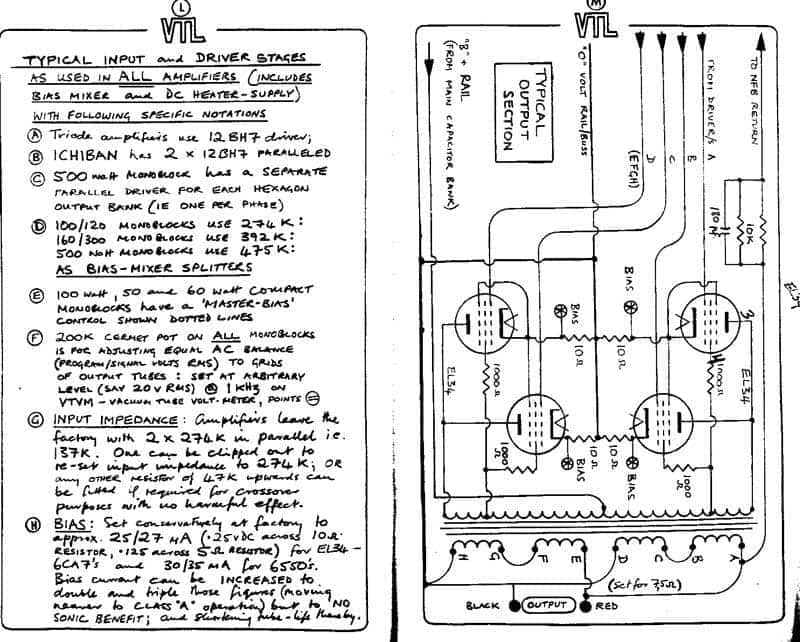 L
VTL
TYPICAL INPUT and DRIVER STAGES
AS USED IN ALL AMPLIFIERS (INCLUDES
BIAS MIXER and DC HEATER-SUPPLY)
WITH FOLLOWING SPECIFIC NOTATIONS
A Triode amplifiers use 12BH7 driver;
B ICHIBAN has 2 x 12BH7 PARALLELED
C 500 watt MONOBLOCK has a SEPARATE
PARALLEL DRIVER FOR EACH HEXAGON
OUTPUT BANK (IE ONE PER PHASE)
D 100/120 MONOBLOCKS USE 274K:
160/300 MONOBLOCKS USE 392K:
500 watt MONOBLOCKS USE 475K:
AS BIAS-MIXER SPLITTERS
E 100 watt, 50 and 60 watt COMPACT
MONOBLOCKS have a 'MASTER-BIAS'
CONTROL SHOWN DOTTED LINES
F 200K CERMET POT ON ALL MONOBLOCKS
IS FOR ADJUSTING EQUAL AC BALANCE
(PROGRAM/SIGNAL VOLTS RMS) TO GRIDS
OF OUTPUT TUBES: SET AT ARBITRARY
LEVEL (SAY 20V RMS) @ 1KHz ON
VTVM - VACUUM TUBE VOLT-METER, POINTS
G INPUT IMPEDANCE: Amplifiers leave the
factory with 2 x 274K in parallel i.e.
137K. One can be clipped out to
re-set input impedance to 274K; OR
any OTHER resistor of 47K upwards can
be fitted if required for crossover
purposes with no harmful effect.
H BIAS: Set conservatively at factory to
approx. 25/27 MA (.25VDC across 10Ω
RESISTOR, .125 across 5Ω RESISTOR) for EL34-
6CA7's and 30/35 MA for 6550's.
Bias current can be INCREASED to
double and triple those figures (moving
nearer to CLASS "A" operation) but to NO
SONIC BENEFIT; and shortening tube-life thereby.
M
VTL
"B" + RAIL
(FROM MAIN CAPACITOR BANK)
TYPICAL
OUTPUT
SECTION
"O" VOLT RAIL/BUSS
(EFGH)
D
C
B
FROM DRIVER/S A
TO NFB RETURN
180
10K
EL34
BIAS
BIAS
3
10Ω
10Ω
EL34
1000Ω
1000Ω
EL34
10Ω
10Ω
BIAS
BIAS
1000Ω
1000Ω
H
G
F
E
D
C
B
A
(Set for 7,5Ω)
BLACK
OUTPUT
RED